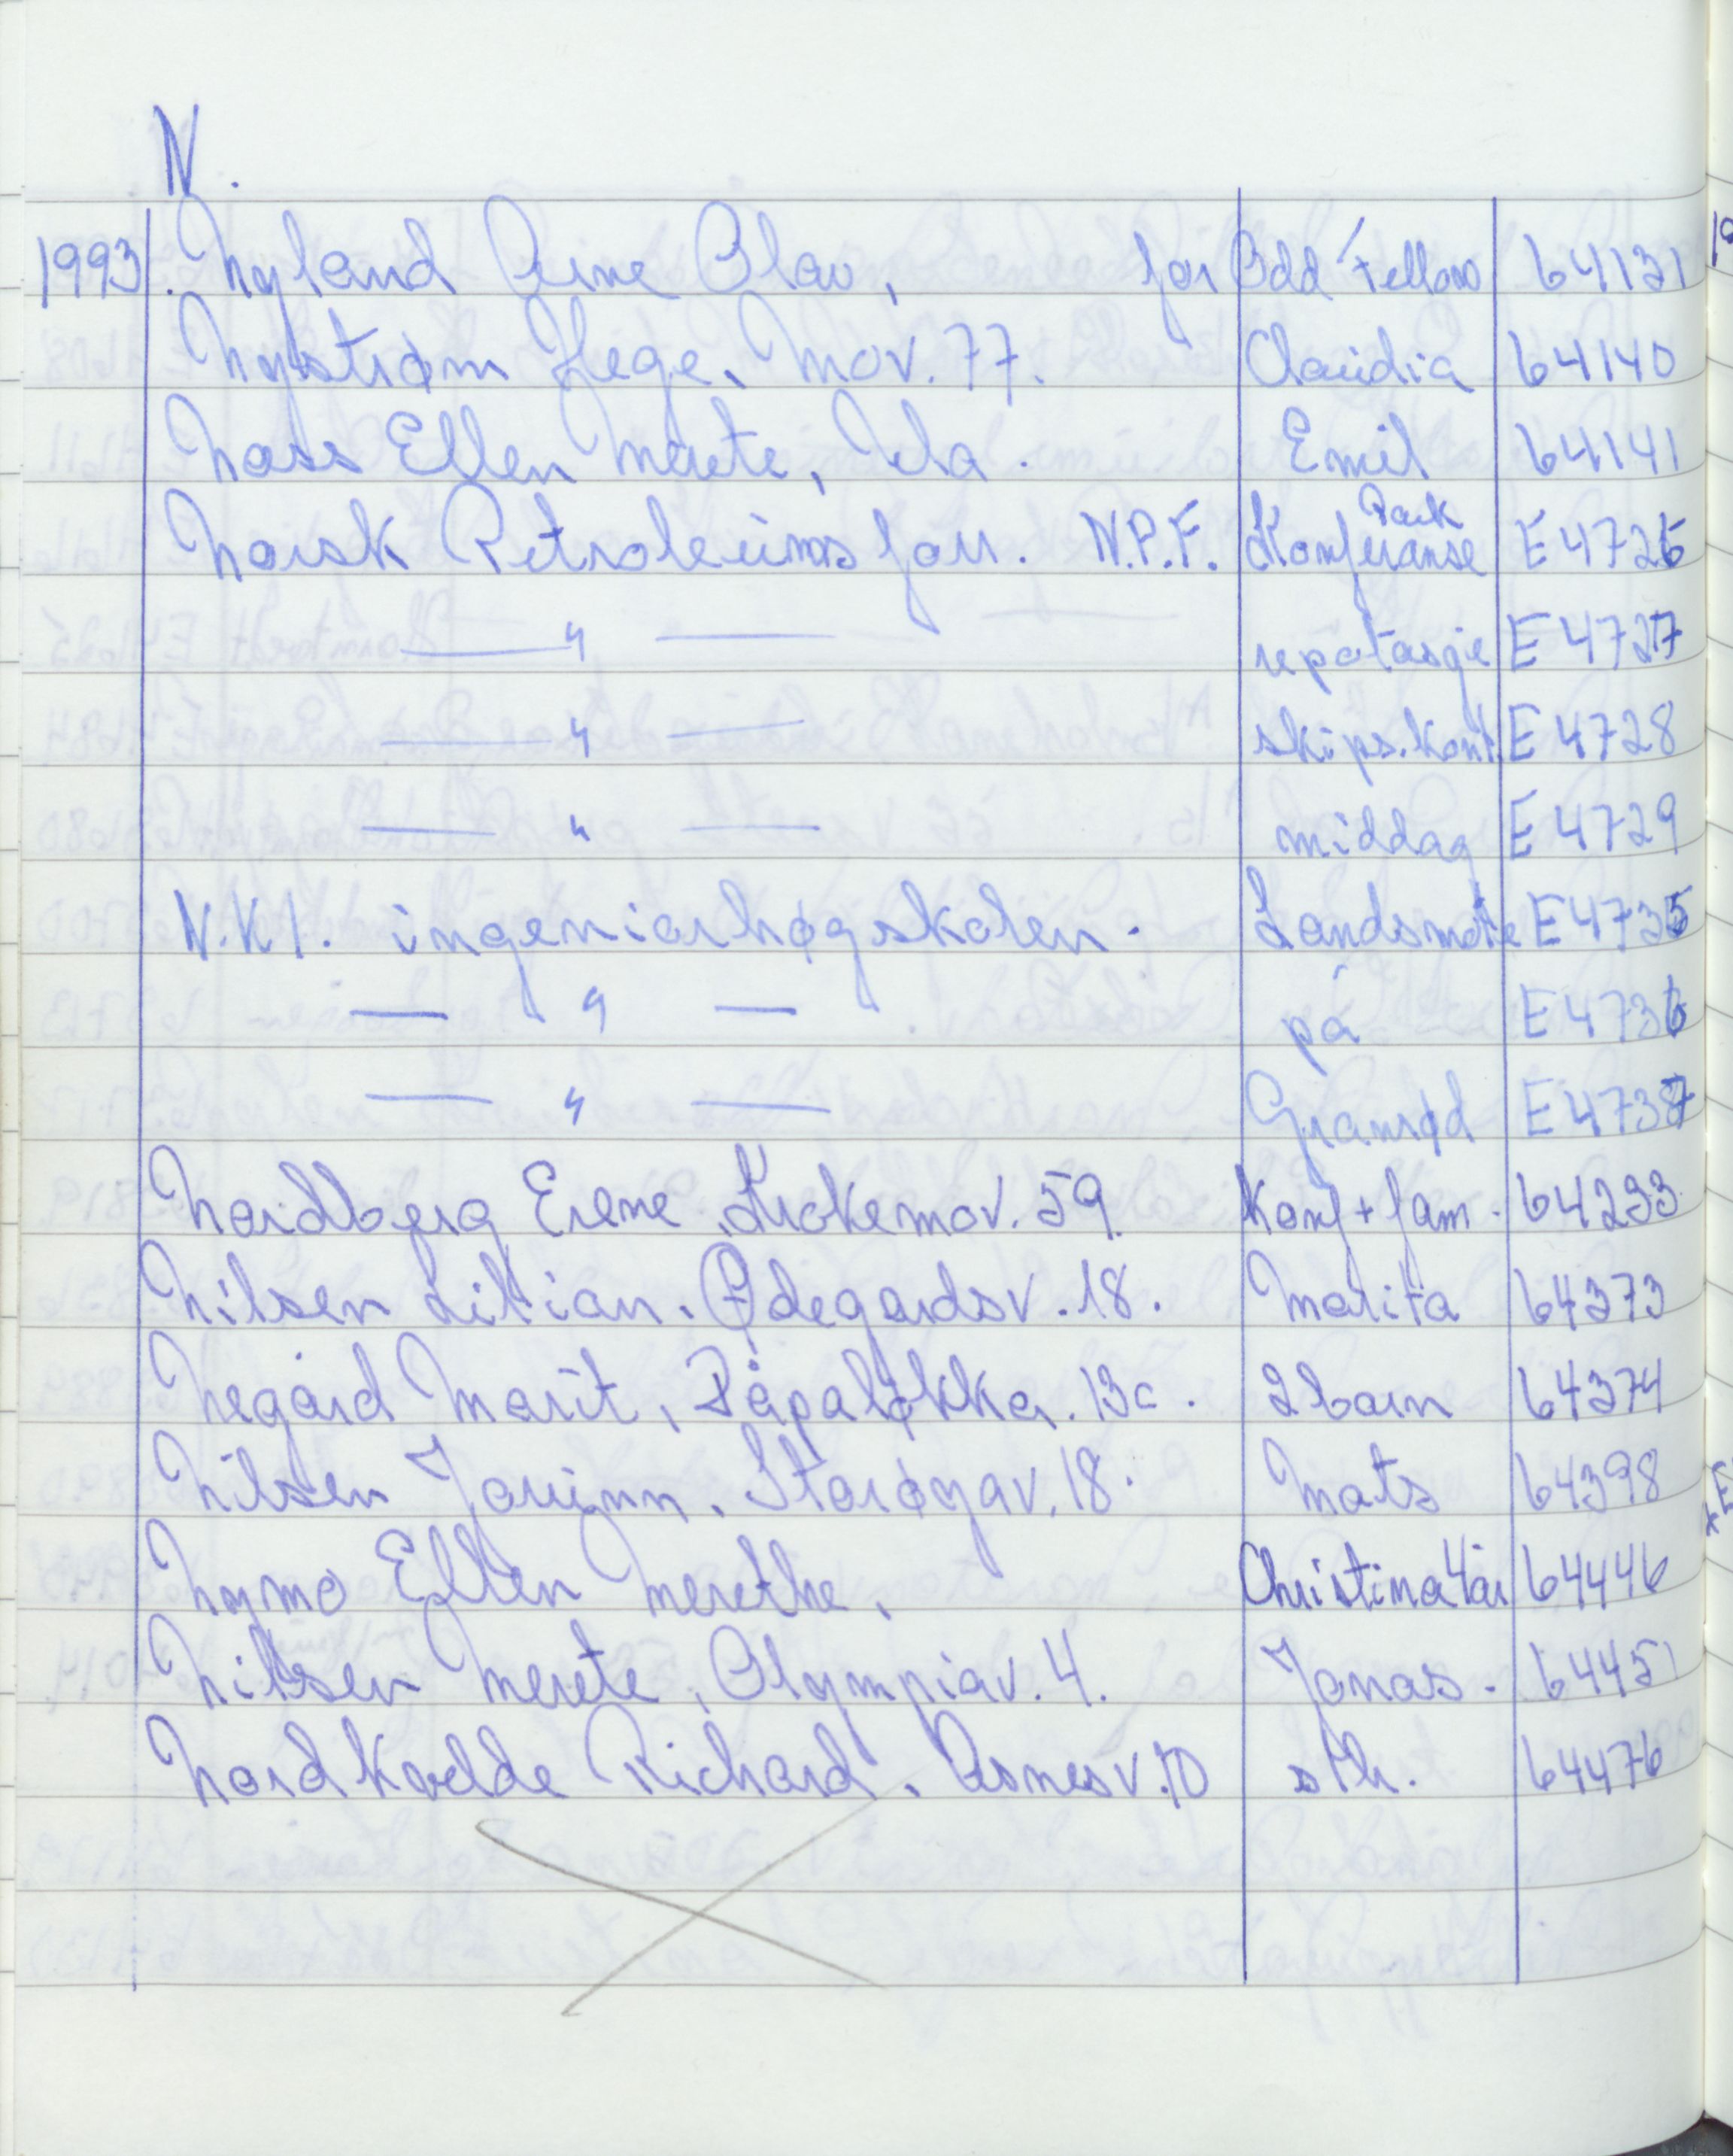 N.
1993. Nyland Arne Olav, for Odd Fellow 64131
Nystrøm Hege, Mov. 77. Claudia 64140
Næss Ellen Merete, Ula. Emil 64141
Norsk Petroleums for. N.P.F. Park Konferanse E 4726
— " — repotasje E 4727
— " — skips.kont. E 4728
— " — middag E 4729
N.K.I. ingeniørhøgskolen. Landsmøte E 4735
— " — på E 4736
— " — Granrød E 4737
Nordberg Erene, Krokemov. 59. Konf + fam. 64233
Nilsen Lilian, Ødegardsv. 18. Marita 64373
Negård Marit, Påpaløkka. 13c. 2 barn 64374
Nilsen Jorunn, Storøyav. 18. Mats 64398
Nymo Ellen Merethe, Christina 4år 64446
Nilsen Merete, Olympiav. 4. Jonas. 64451
Nordkvelde Richard, Asnesv. 10 sth. 64476